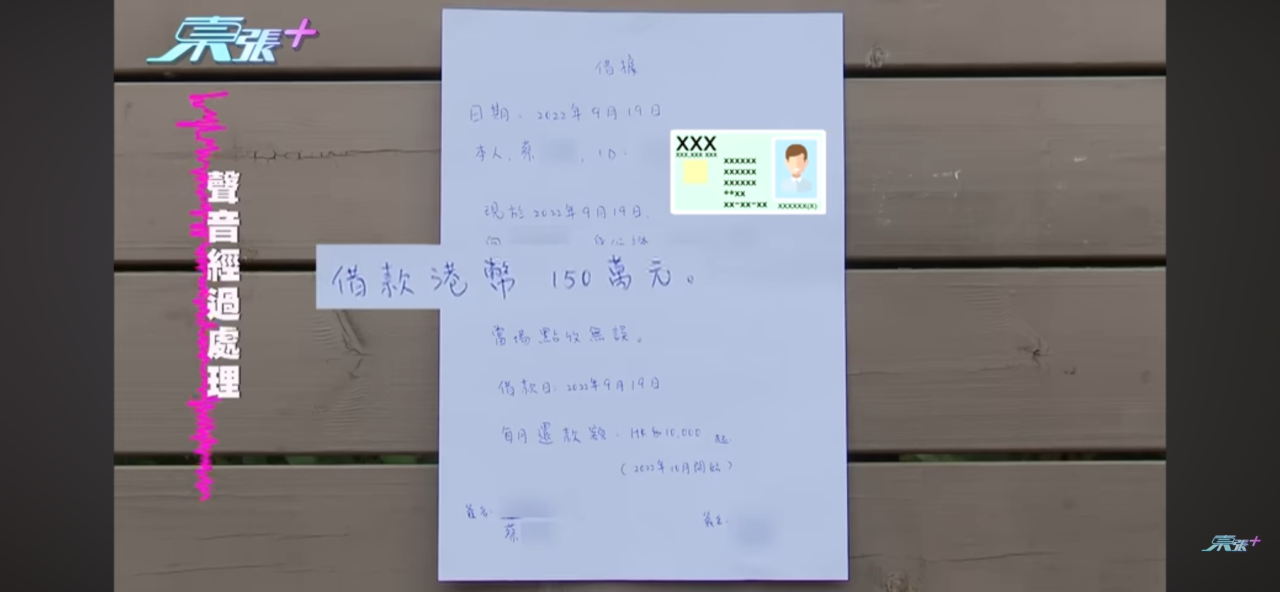 東張+
聲音經過處理
借據
日期：2022年9月19日
本人，蔡 ，ID：
XXX
XXX,XXX XXX
XXXXXX
XXXXXX
XXXXXX
**XX
XX-XX-XX
XXXXXX(X)
現於2022年9月19日，
向
借款港幣 150萬元。
當場點收無誤。
借款日：2022年9月19日
每月還款額：HK$10,000 起
（2022年10月開始）
簽名： 簽名：
蔡
東張+